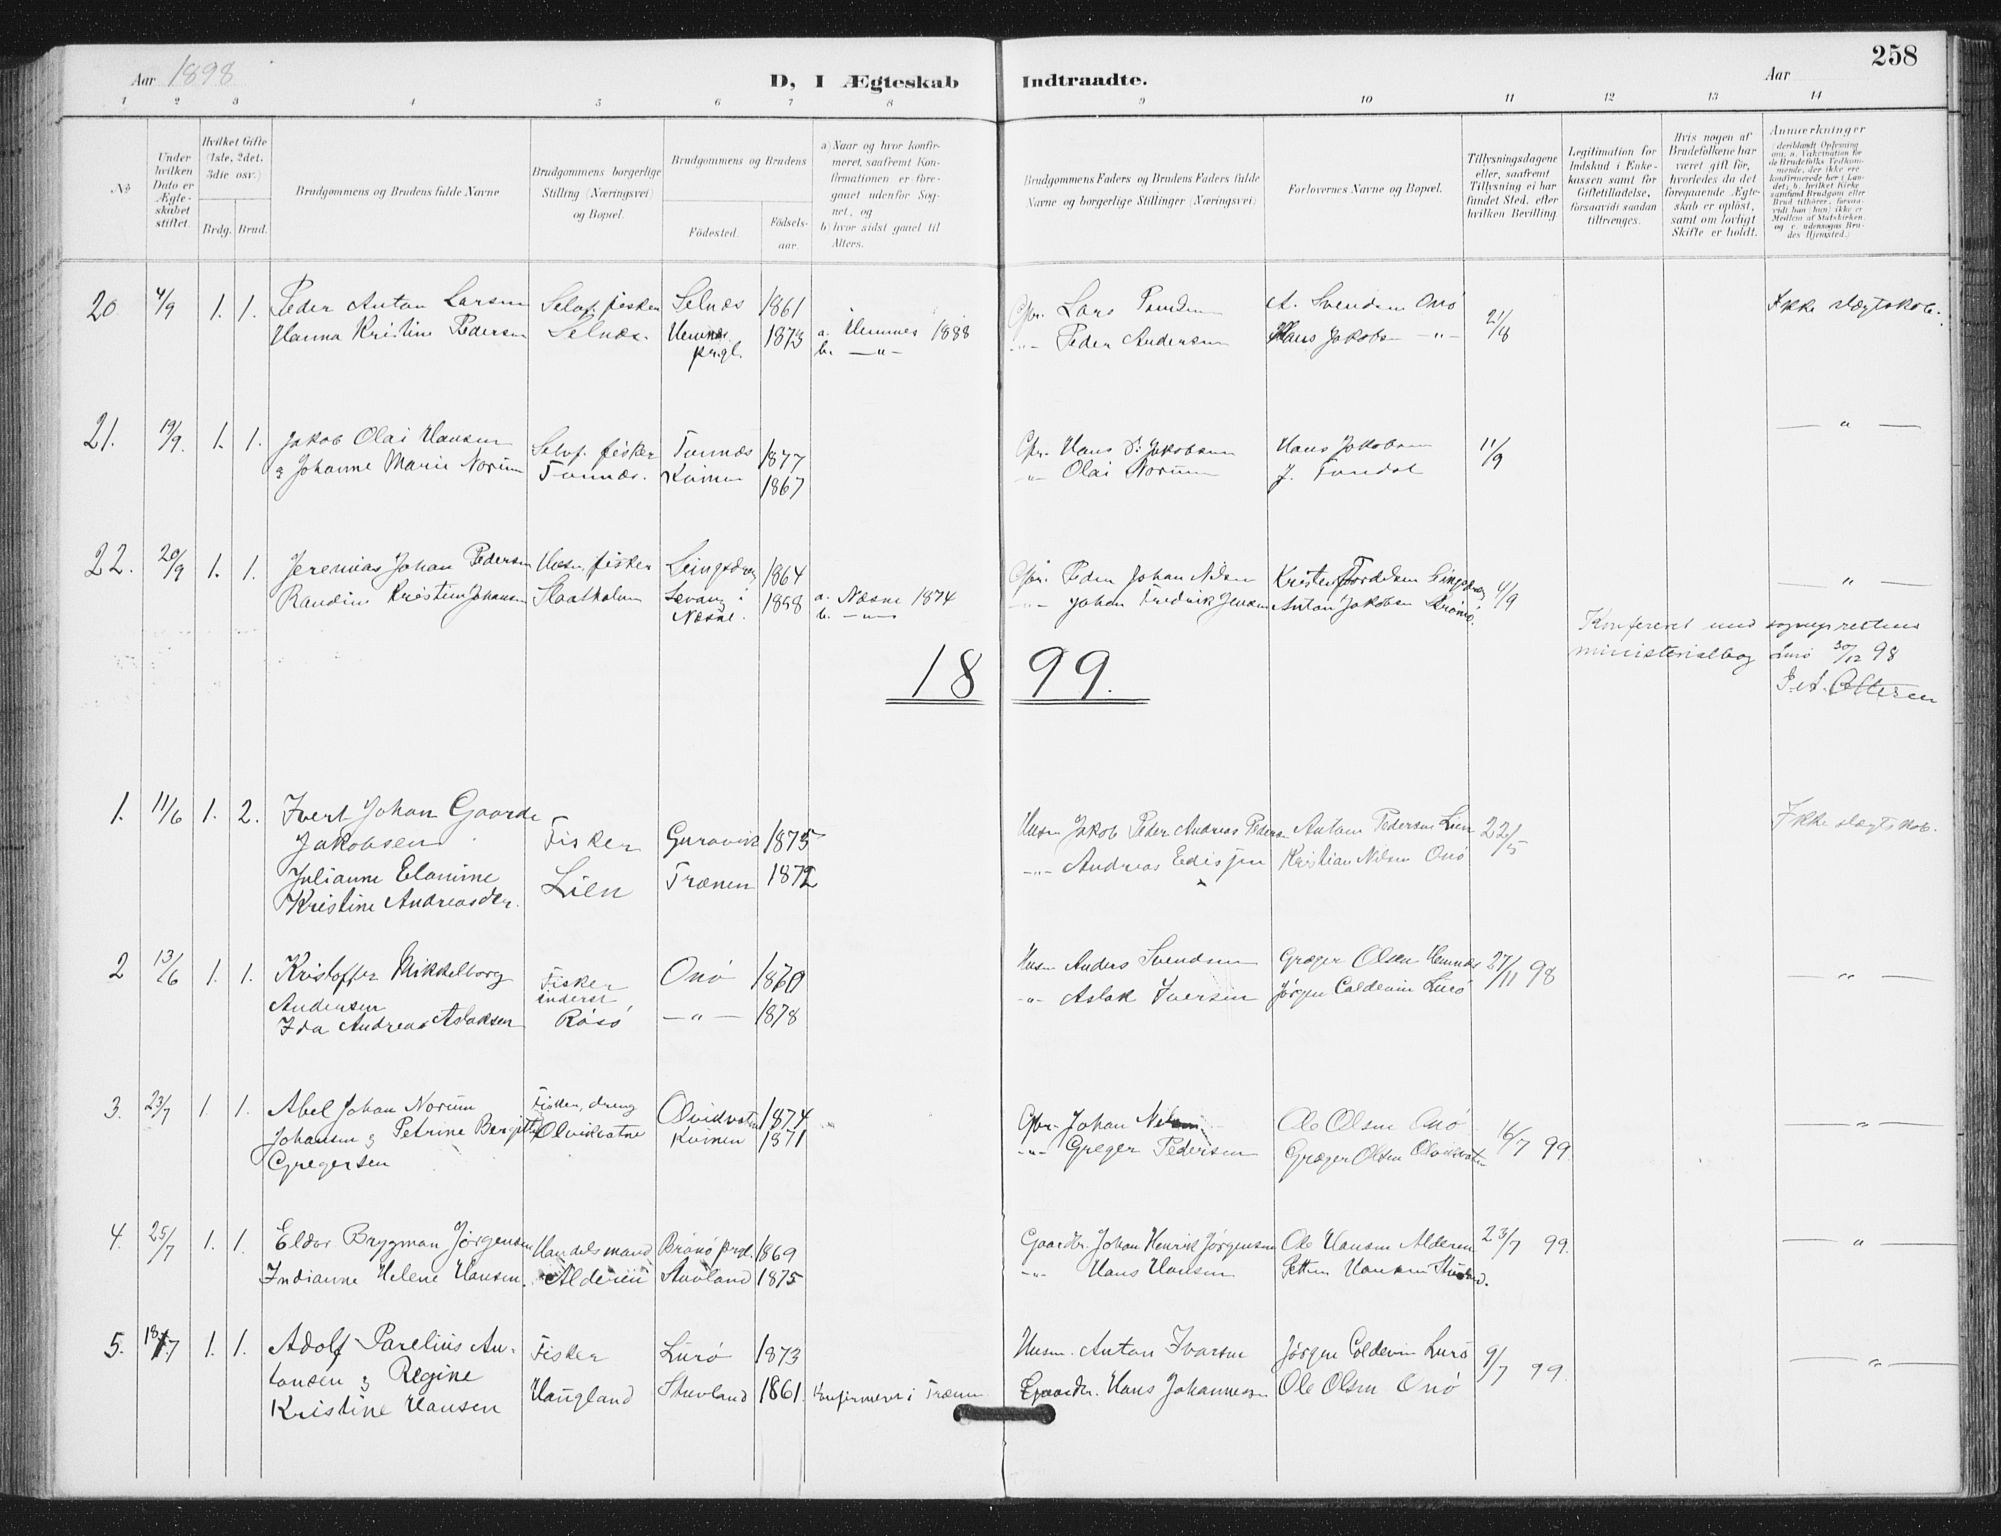 258
Aar 1898
D, I Ægteskab Indtraadte.
Aar
1 2 3 4 5 6 7 8 9 10 11 12 13 14
No
Under hvilken Dato er Ægteskabet stiftet.
Hvilket Gifte (1ste, 2det, 3die osv.)
Brdg. Brud.
Brudgommens og Brudens fulde Navne
Brudgommens borgerlige Stilling (Næringsvei) og Bopæl.
Brudgommens og Brudens
Födested.
Födsels-aar.
a) Naar og hvor konfirmeret, saafremt Konfirmationen er foregaaet udenfor Sognet, og
b) hvor sidst gaaet til Alters.
Brudgommens Faders og Brudens Faders fulde Navne og borgerlige Stillinger (Næringsvei)
Forlovernes Navne og Bopæl.
Tillysningsdagene eller, saafremt Tillysning ei har fundet Sted, efter hvilken Bevilling
Legitimation for Indskud i Enkekassen samt for Giftetilladelse, forsaavidt saadan tiltrænges.
Hvis nogen af Brudefolkene har været gift før, hvorledes da det foregaaende Ægteskab er opløst, samt om lovligt Skifte er holdt.
Anmerkninger
20 4/9 1. 1. Peder Anton Larsen Selvf. fisker Selnæs 1861 Lars A. Svendsen Onö 21/8 Ikke slægtskab.
Hanna Kristine Pedersen Selnæs. Hemnæs prgl. 1873 a. Hemnes 1888 b. —"— " Peder Andersen Hans Jakobsen —"—
21. 19/9 1. 1. Jakob Olai Hansen Selvf. fisker Tonnæs 1877 Hans P. Jakobsen Hans Jakobsen 11/9 —"—
& Johanne Marie Norum Tonnæs. Kvinen 1867 " Olai Norum J. Fondal
22. 20/9 1. 1. Jeremias Johan Pedersen Husm. fisker 1864 Peder Johan Nilsen —"—
Raudine Kristine Johansen Slaatholmen Levang i Næsne. 1858 a. Næsne 1874 b. —"— " Johan Fredrik Jensen Anton Jakobsen 4/9
Konfereret med sogneprestens
ministerialbog Lurö 30/12 98
18 99.
1. 11/6 1. 2. Ivert Johan Gaarde
Jakobsen Fisker Guravik 1875 Husm Jakob Peder Andreas Pedersen Anton Pedersen Lien 22/5 Ikke slægtskab.
Julianne Elamine Lien Trænen 1872 —"— Andreas Kristian Nilsen Onö
Kristine Andreasdtr.
2 13/6 1. 1. Kristoffer Mikkelborg Fisker Onö 1870 Husm Anders Svendsen Græger Olsen Hemnæs 27/11 98 —"—
Andersen inderst
Ida Andrea Aslaksen Rösö —"— 1878 " Aslak Iversen Jörgen Coldevin Lurö
3. 23/7 1. 1. Abel Johan Norum Fisker, dreng Olvikvatne 1874 Johan Nelsen Ole Olsen Onö 16/7 99. —"—
Johansen & Petrine Bergitte Olvikvatne Kvinen 1871 " Greger Pedersen Græger Olsen Olvikvatne
Gregersen
4. 25/7 1. 1. Eldor Brygman Jörgensen Handelsmand Brönö prgl. 1869 Gaardbr. Johan Henrik Jörgensen Ole Hansen Alderen 23/7 99. —"—
Indianne Helene Hansen. Alderen Stuvland 1875 " Hans Hansen Petter Hansen Stuvland.
5. 18/7 1. 1. Adolf Parelius An- Fisker Lurö 1873 Husm. Anton Ivarsen Jörgen Coldevin Lurö 9/7 99. —"—
tonsen & Regine Haugland Stuvland 1861. Konfirmeret i Trænen Gaardbr. Hans Johannesen Ole Olsen Onö
Kristine Hansen